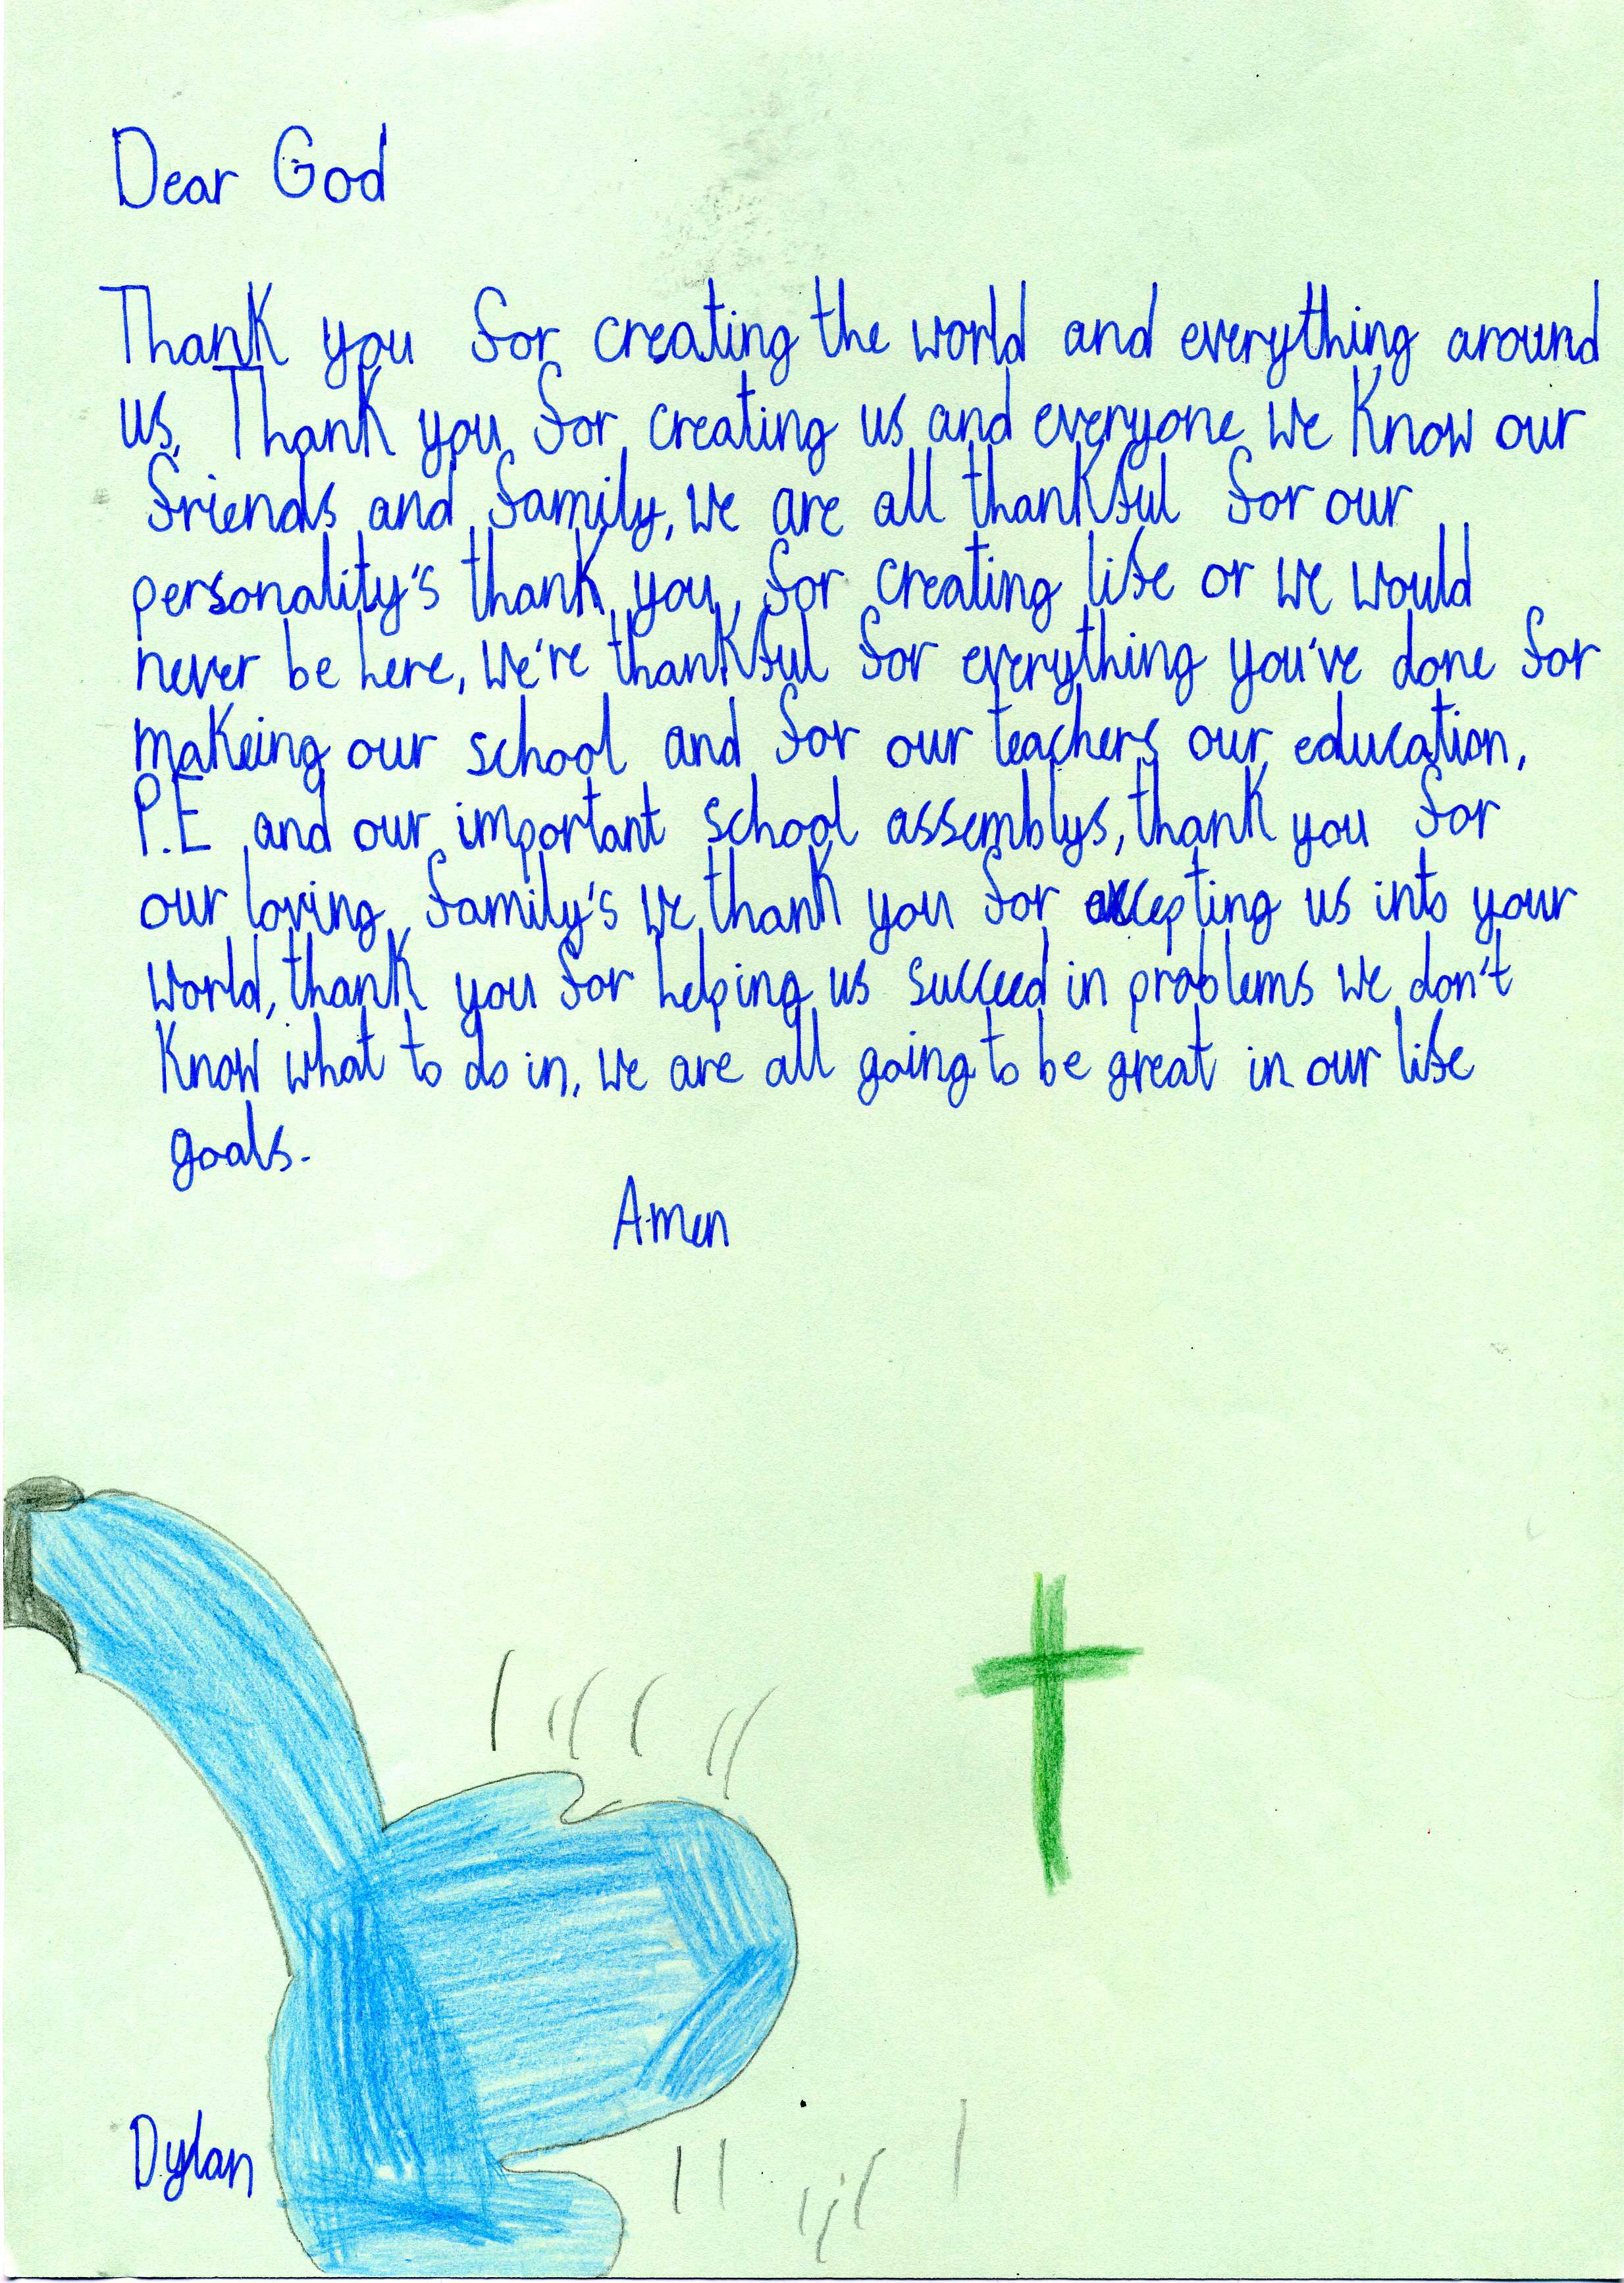 Dear God
Thank you for creating the world and everything around
us, Thank you for creating us and everyone we know our
friends and family, we are all thankful for our
personality's thank you, for creating life or we would
never be here, we're thankful for everything you've done for
makeing our school and for our teachers our education,
P.E and our important school assemblys, thank you for
our loving family's we thank you for accepting us into your
world, thank you for helping us succeed in problems we don't
know what to do in, we are all going to be great in our life
goals.
Amen
Dylan